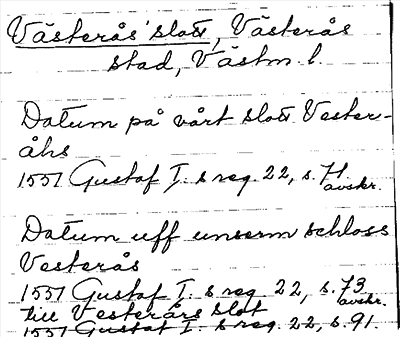 Västerås slott, Västerås
stad, Västm. l.
Datum på vårt slott Vester-
åhs
1551 Gustaf I. s reg. 22, s. 71.
avskr.
Datum uff unserm schloss
Vesterås
1551 Gustaf I. s reg. 22, s. 73
avskr.
till Vesterårs slot
1551 Gustaf I. s reg. 22, s. 91.